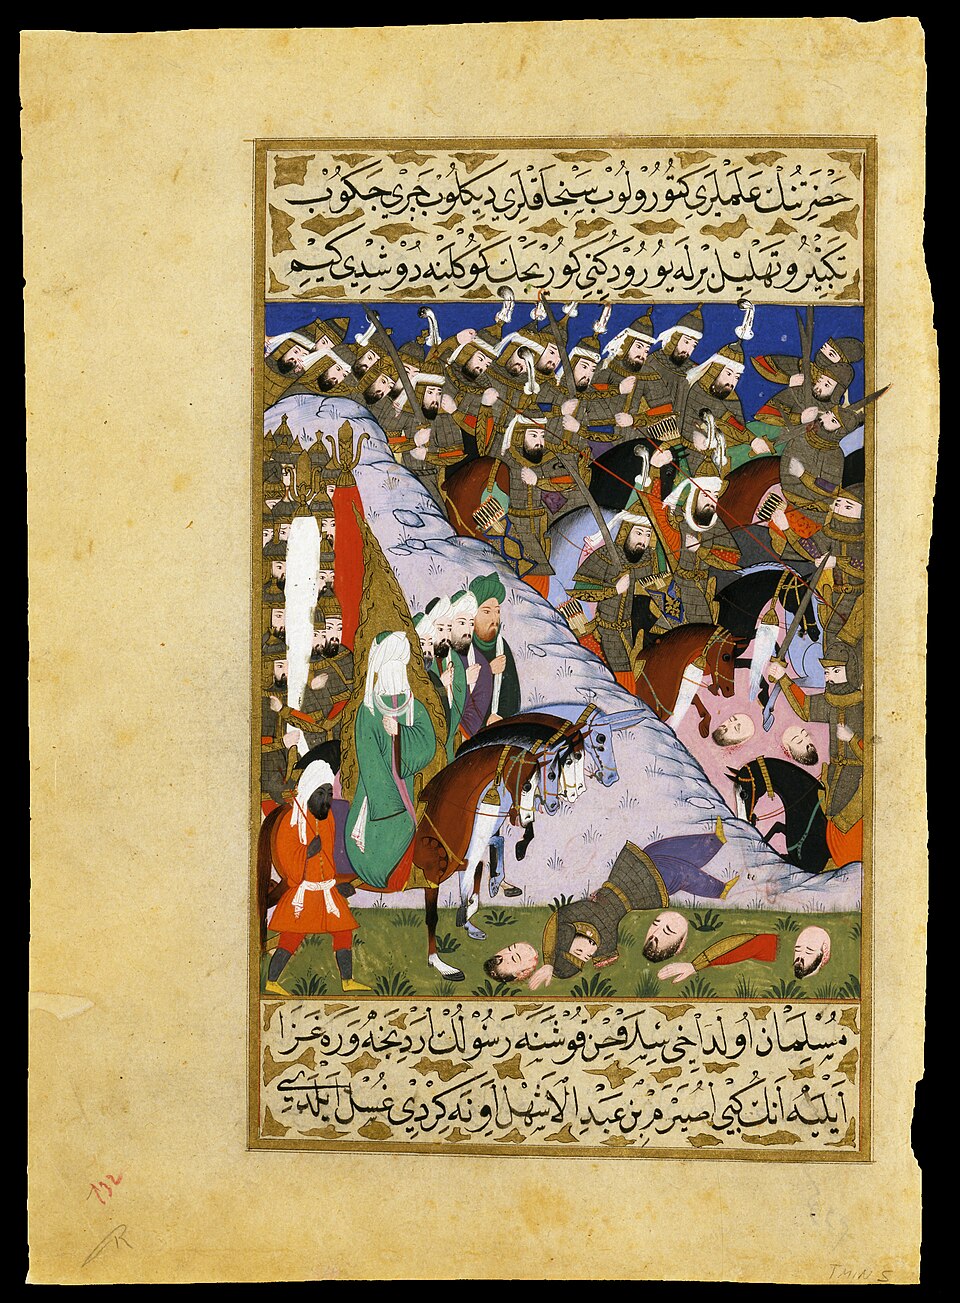 حَضْرَتُنُكْ عَلَمْلَرِي كَتُورُولُوبْ سَنْجَاقْلَرِي دِيكِلُوبْ جَرِي جَكُوبْ
تَكْبِيْرُ وتَهْلِيلْ بِرْلَه يُورُودُ كِنِي كُورِيجَكْ كُوكُلِينَه دُوشْدِي كِيمْ
مُسُلْمَانْ اُولَدَاخِي سِلَاحِنْ قُوشَنَه رَسُولُكْ اَرْدِنْجَه وَرَه غَزَا
اَيْلَيَه اَنُكْ كِبِي اُصَيْرَمْ بِنْ عَبْدِ الْاَشْهَلْ اَوِنَه كِرْدِي غُسْلْ اَيْلَدِي
132
R
TMIN 5